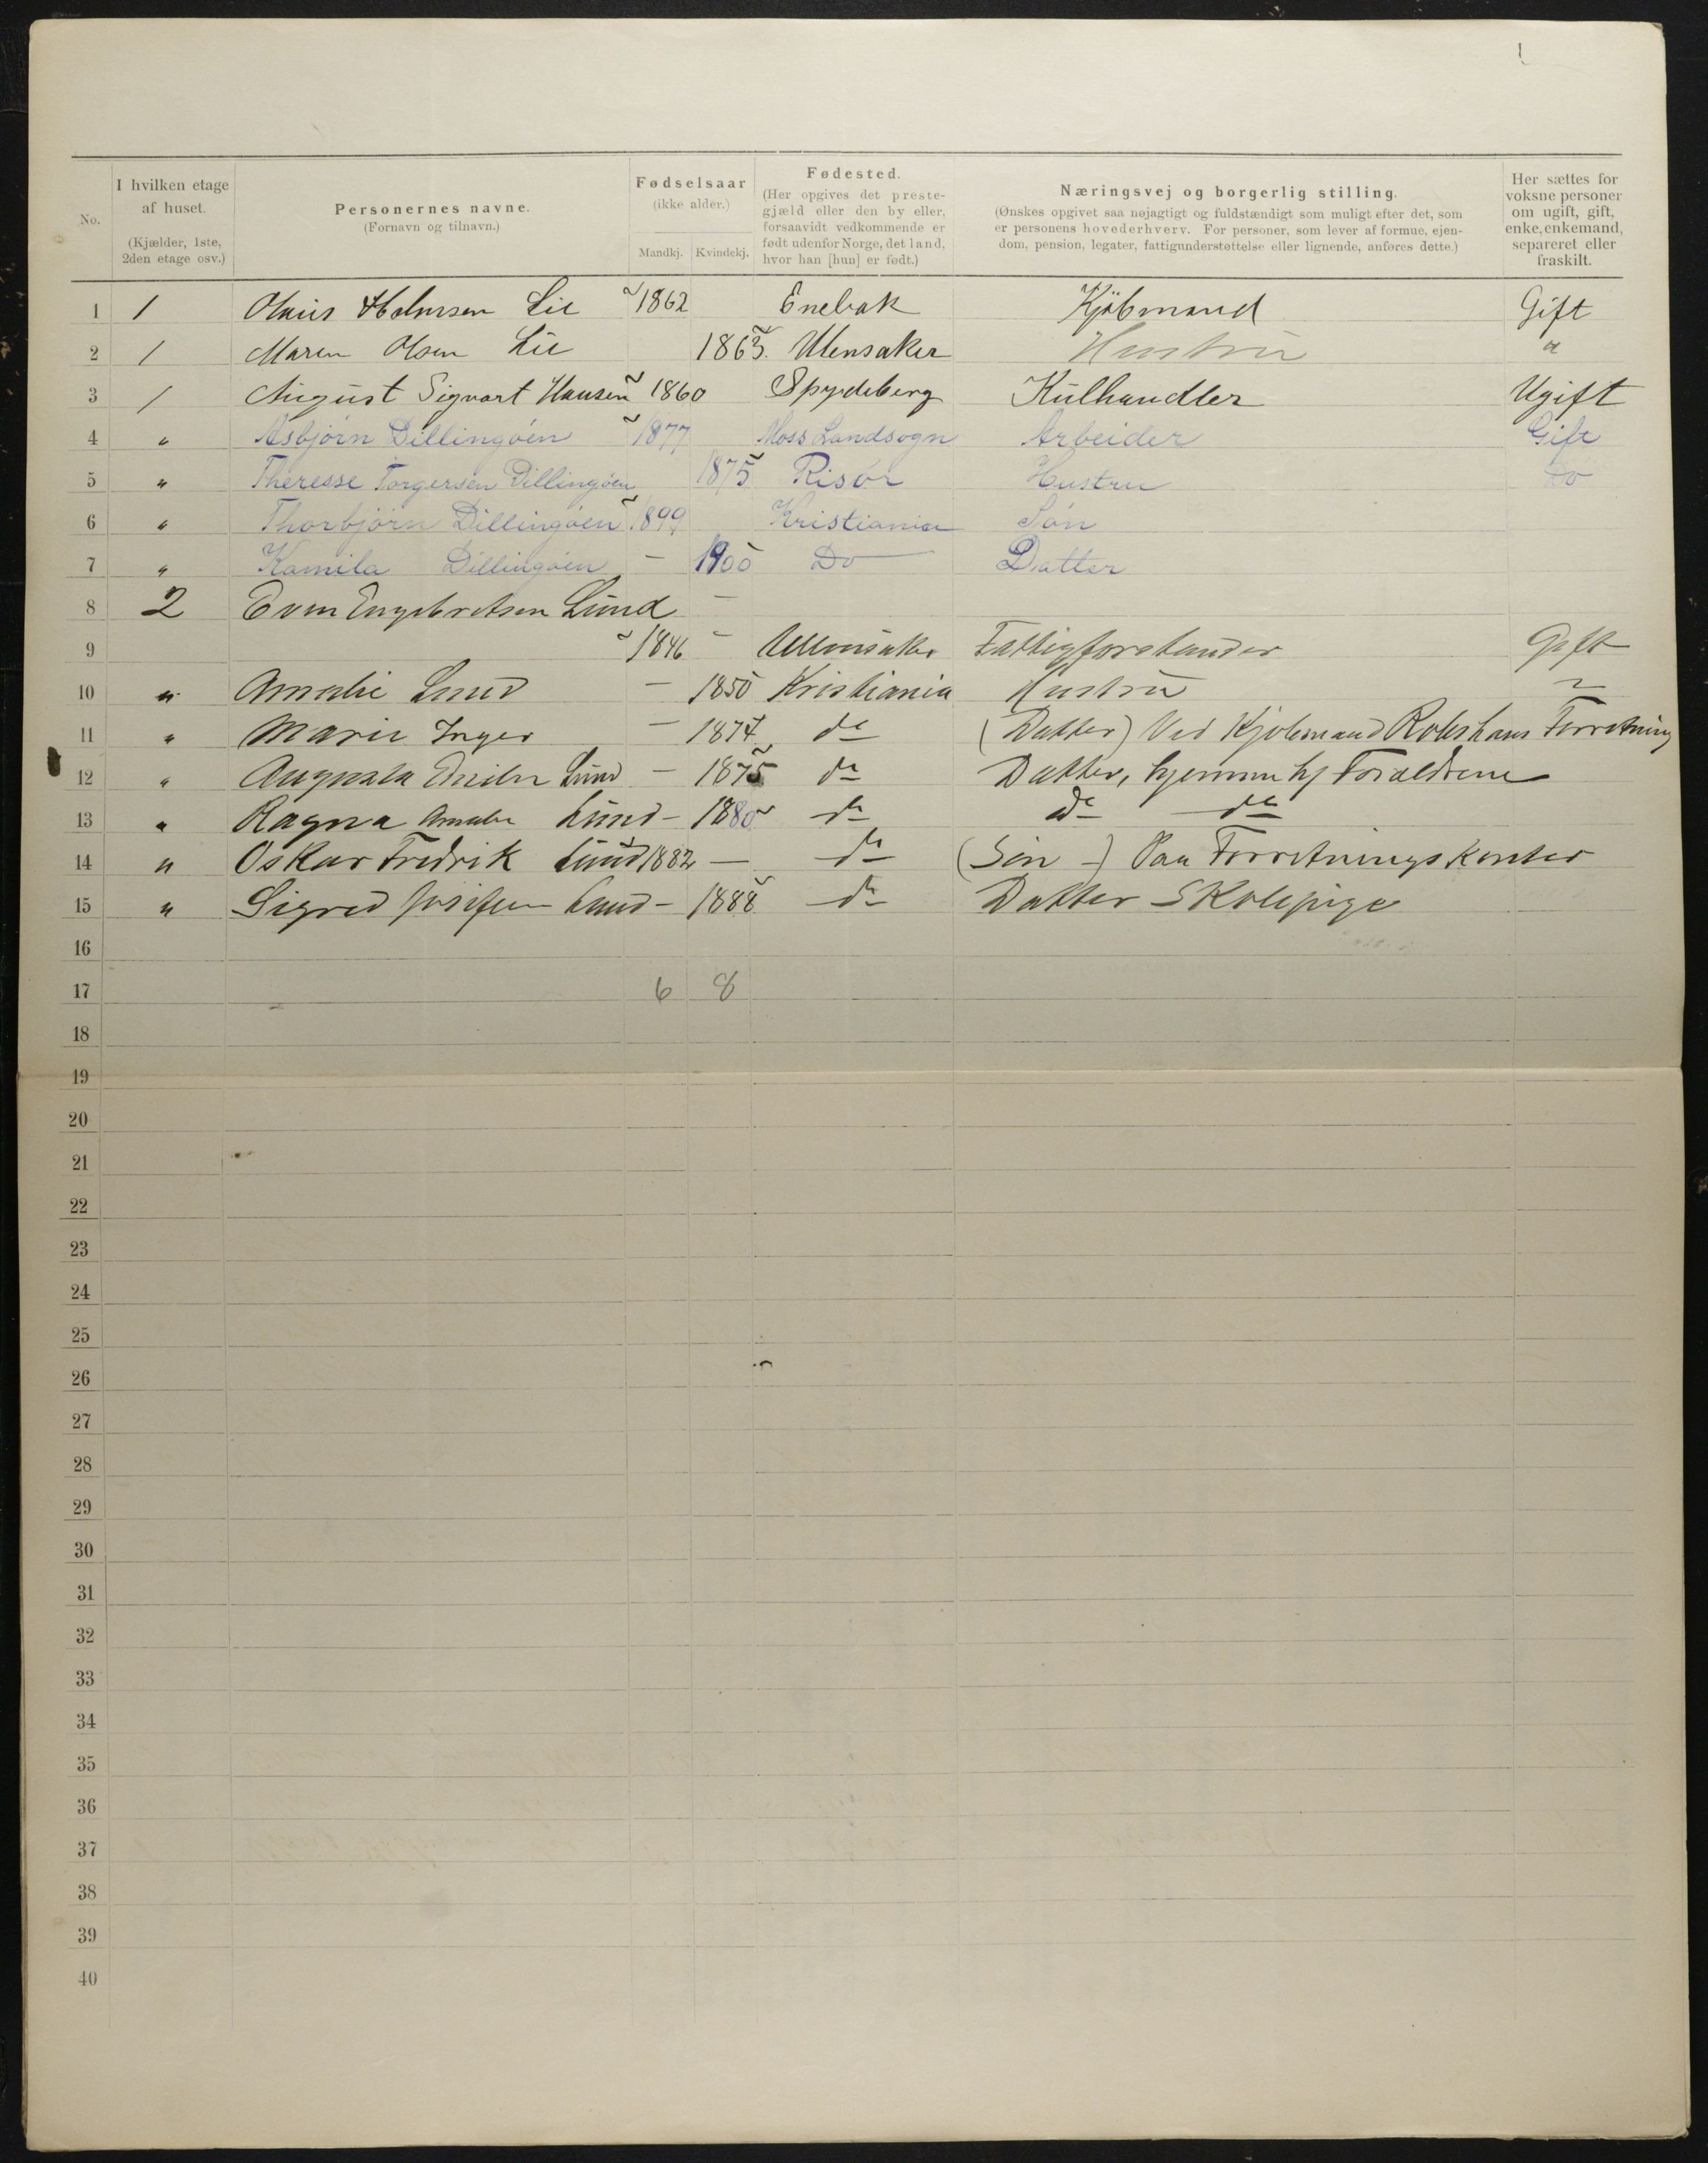 No. I hvilken etage af huset. (Kjælder, 1ste, 2den etage osv.) Personernes navne. (Fornavn og tilnavn.) Fødselsaar (ikke alder.) Mandkj. Kvindekj. Fødested. (Her opgives det prestegjæld eller den by eller, forsaavidt vedkommende er født udenfor Norge, det land, hvor han [hun] er født.) Næringsvej og borgerlig stilling. (Ønskes opgivet saa nøjagtigt og fuldstændigt som muligt efter det, som er personens hovederhverv. For personer, som lever af formue, ejendom, pension, legater, fattigunderstøttelse eller lignende, anføres dette.) Her sættes for voksne personer om ugift, gift, enke, enkemand, separeret eller fraskilt.
1 1 Olaus Holmsen Lie 1862 Enebak Kjöbmand Gift
2 1 Maren Olsen Lie 1863. Ulensaker Hustru "
3 1 August Sigvart Hansen 1860 Spydeberg Kulhandler Ugift
4 " Asbjörn Dillingöen 1877 Moss Landsogn Arbeider Gift
5 " Theresse Torgersen Dillingöen 1875 Risör Hustru Do
6 " Thorbjörn Dillingöen 1899 Kristiania Sön
7 " Kamila Dillingöen — 1900 Do Datter
8 2 Even Engebretsen Lund —
9 1846 – Ullensaker Fattigforstander Gift
10 " Amalie Lund — 1850 Kristiania Hustru "
11 " Marie Inger — 1874 do (Datter) Ved Kjøbmand Forretning
12 " Augusta Emilie Lund — 1875 do Datter, hjemme hj Forældrene
13 " Ragna Amalie Lund – 1880 do do do
14 " Oskar Fredrik Lund 1882 — do (Søn –) Paa Forretningskontor
15 " Sigrid Josefine Lund – 1888 do Datter Skolepige
16
17 6 8
18
19
20
21
22
23
24
25
26
27
28
29
30
31
32
33
34
35
36
37
38
39
40